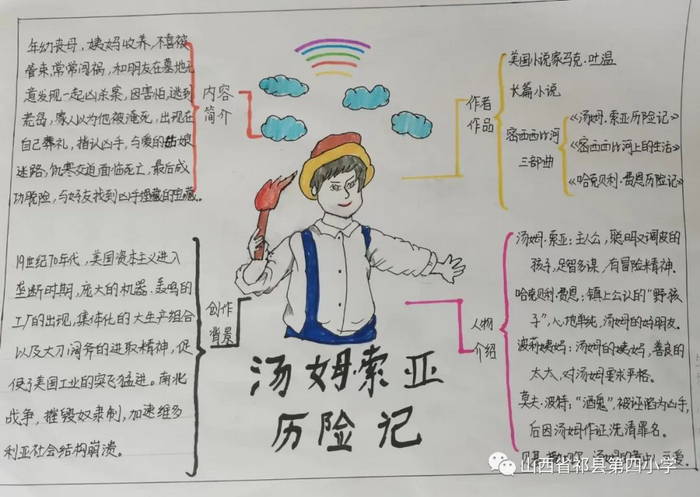 年幼丧母，姨妈收养，不喜被
管束，常常闯祸，和朋友在墓地无
意发现一起凶杀案，因害怕，逃到
荒岛，家人以为他被淹死，出现在
自己葬礼，指认凶手，与爱的姑娘
迷路，饥寒交迫面临死亡，最后成
功脱险，与好友找到凶手埋藏的宝藏。
内容
简介
作者
作品
美国小说家马克·吐温
长篇小说
密西西比河
三部曲
《汤姆·索亚历险记》
《密西西比河上的生活》
《哈克贝利·费恩历险记》
19世纪70年代，美国资本主义进入
垄断时期，庞大的机器、轰鸣的
工厂的出现，集体化的大生产组合
以及大刀阔斧的进取精神，促
使了美国工业的突飞猛进。南北
战争，摧毁奴隶制，加速维多
利亚社会结构崩溃。
创作
背景
人物
介绍
汤姆·索亚：主人公，聪明又调皮的
孩子，足智多谋，有冒险精神。
哈克贝利·费恩：镇上公认的“野孩
子”，心地单纯，汤姆的好朋友。
波莉姨妈：汤姆的姨妈，善良的
太太，对汤姆要求严格。
莫夫·波特：“酒鬼”，被诬陷为凶手，
后因汤姆作证洗清罪名。
汤姆索亚
历险记
山西省祁县第四小学